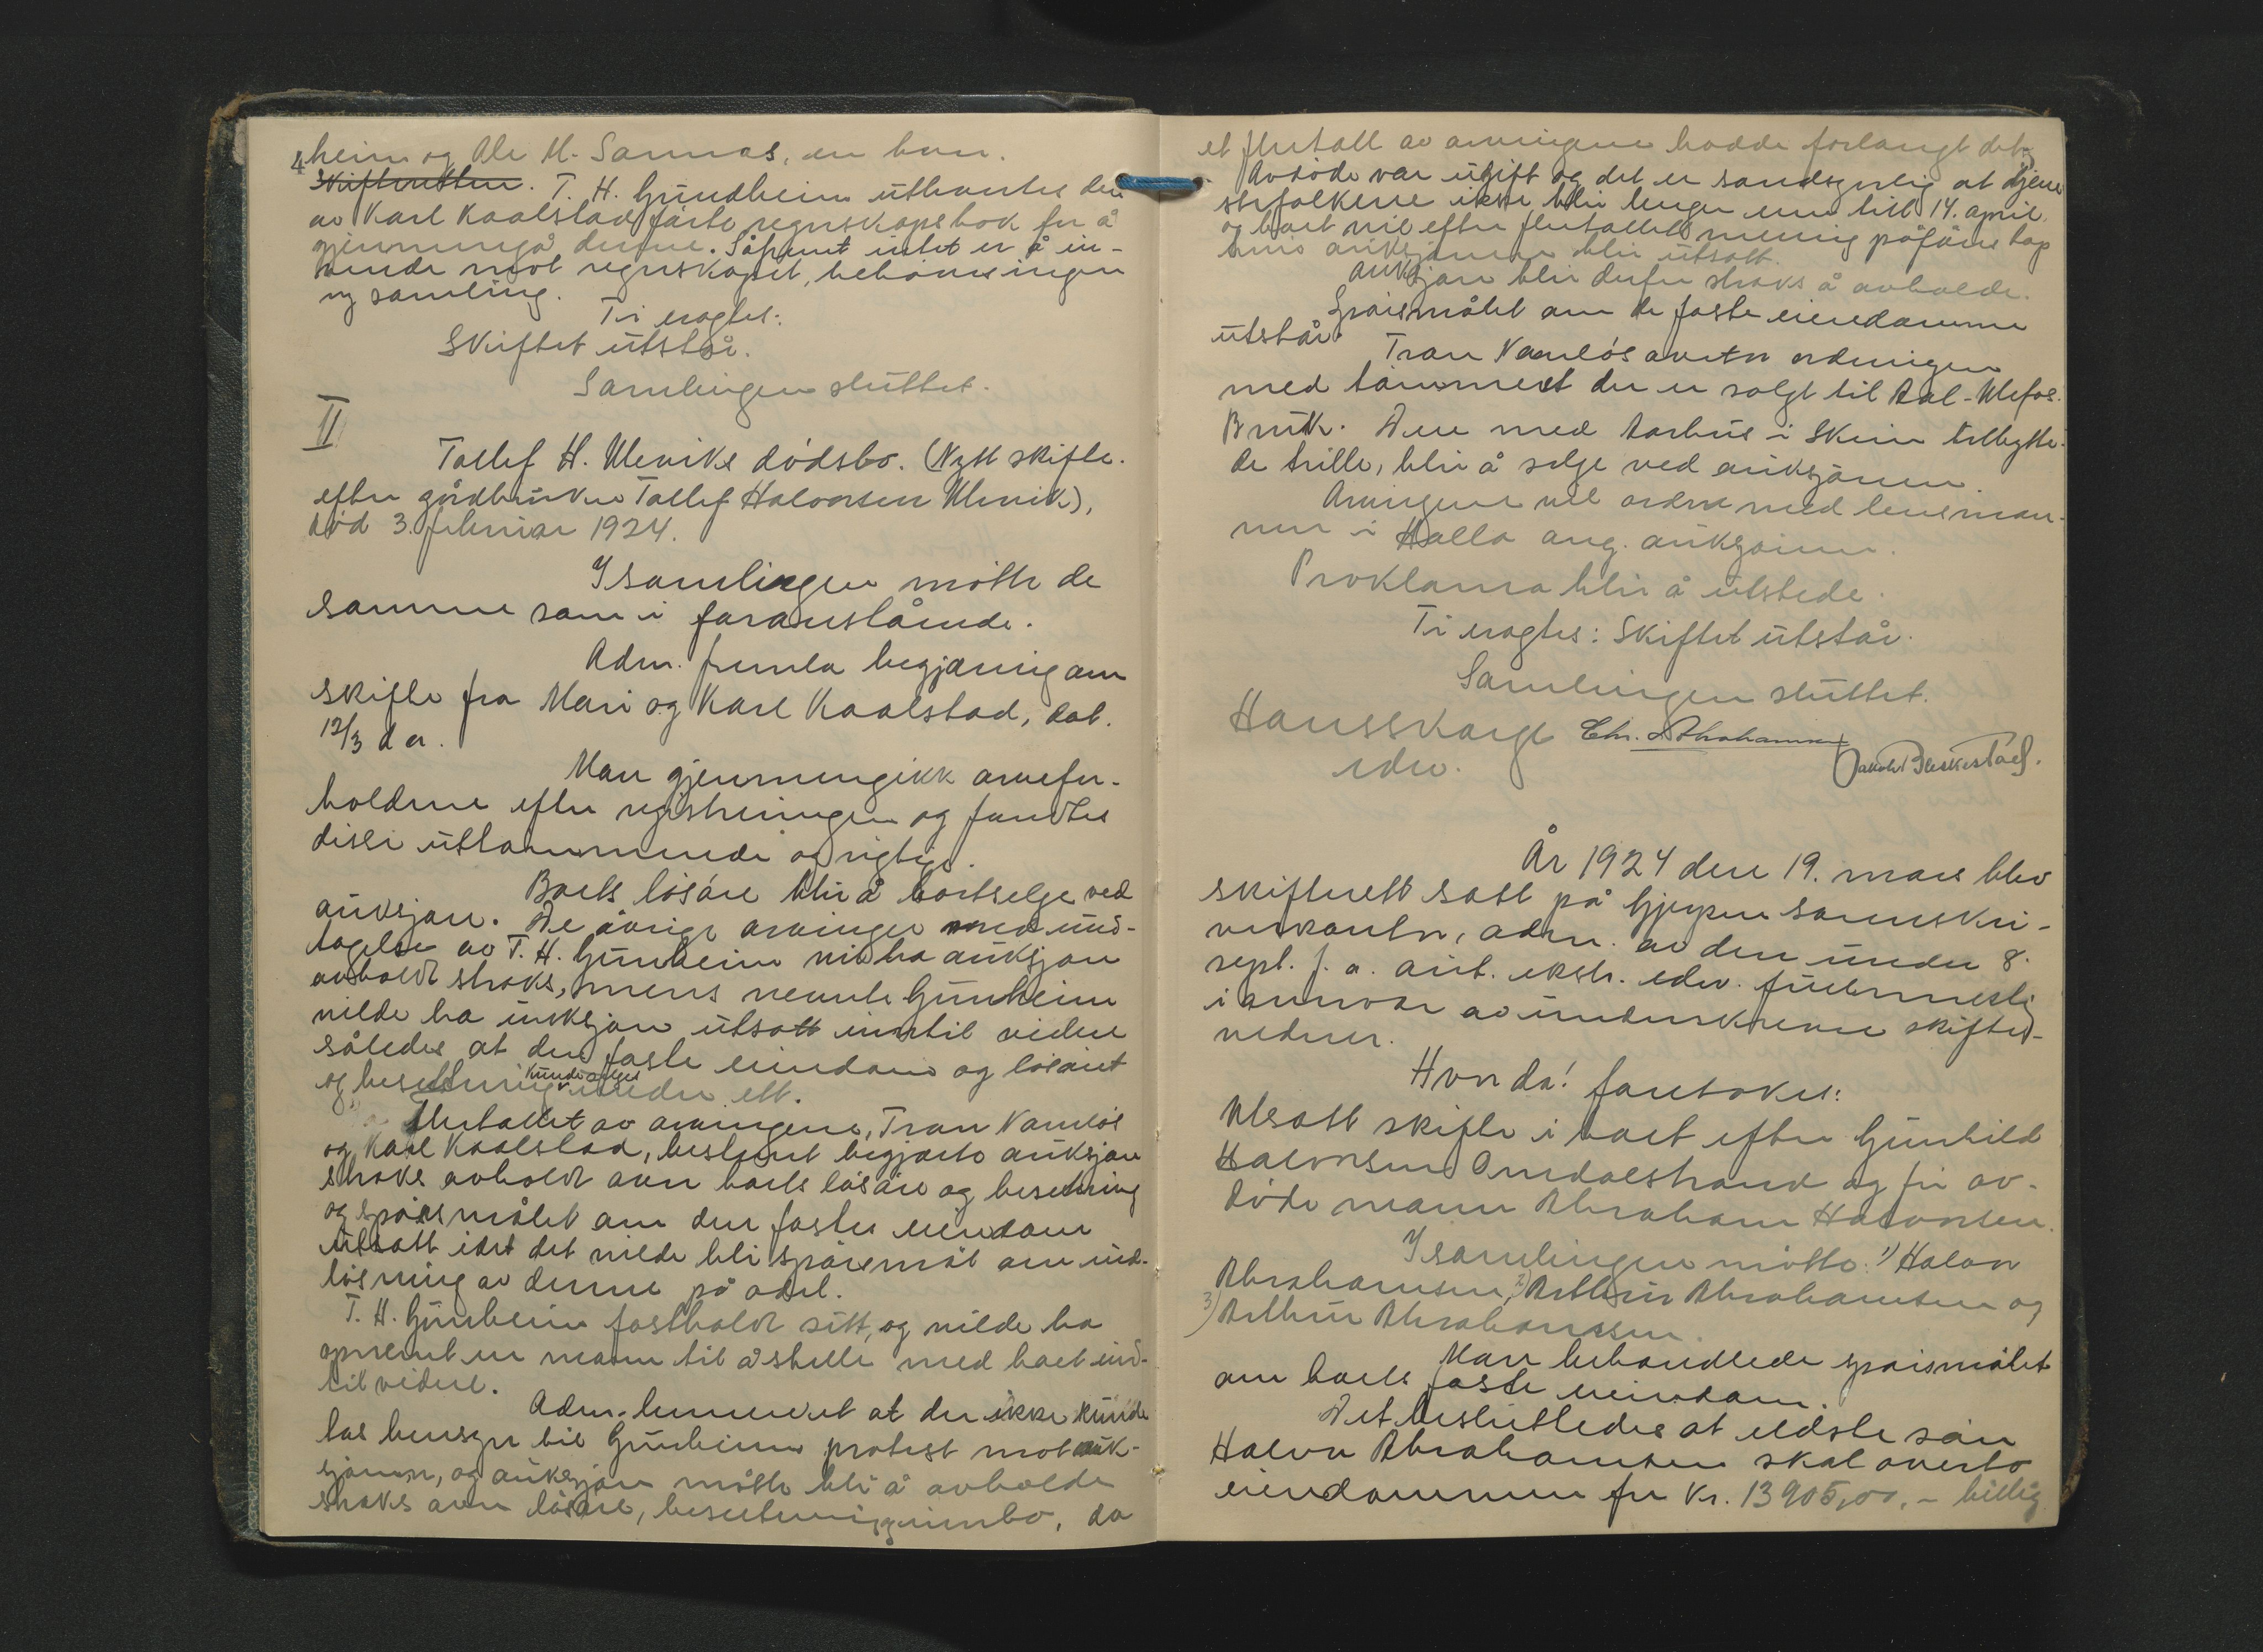 4 heim og Ole H. Sannas, en bror.
Skifteretten. T. H. Gundheim utlaantes den
av Karl Kaalstad førte regnskapsbok for å
gjennemgå denne. Såfremt intet er å in-
vende mot regnskapet, behøves ingen
ny samling.
Ti vagtes:
Skiftet utstår.
Samlingen sluttet.
II
Tollef H. Uleviks dødsbo. (Nytt skifte.
efter gårdbruker Tollef Halvorsen Ulevik),
død 3. februar 1924.
I samlingen møtte de
samme som i foranstående.
Adm. fremla begjæring om
skifte fra Mari og Karl Kaalstad, dat.
12/3 d a.
Man gjennemgikk arvefor-
holdene efter registreringen og fandtes
disse uttømmende og rigtige.
Boets løsøre blir å bortselge ved
auksjon. De øvrige arvinger med und-
tagelse av T. H. Gunheim vil ha auksjon
avholdt straks, mens nevnte Gunheim
vilde ha auksjon utsatt inntil videre
således at den faste eiendom og løsøret
og besetning kunde selges under ett.
Flertallet av arvingene, Tron Namløs
og Karl Kaalstad, bestemt begjærte auksjon
straks avholdt over boets løsøre og besetning
og spørsmålet om den faste eiendom
utsatt idet det vilde bli spørsmål om ind-
løsning av denne på odel.
T. H. Gunheim fastholdt sitt, og vilde ha
opnevnt en mann til å stelle med boet ind-
til videre.
Adm. bemerket at der ikke kunde
tas hensyn til Gunheims protest mot auk-
sjonen, og auksjon måtte bli å avholde
straks over løsøre, besetning innbo, da
et flertall av arvingene hadde forlangt det.
Avdøde var ugift og det er sandsynlig at tjene
stefolkene ikke blir lenger enn till 14. april.
og boet vil efter flertallets mening påføres tap
hvis auksjonen blir utsatt.
Auksjon blir derfor straks å avholde.
Spørsmålet om de faste eiendomme
utstår.
Tron Namløs avetn ordningen
med tømmeret der er solgt til Aal-Ulefos
Bruk. Den med Aarhus i Skien tilbytte-
de trille, blir å selge ved auksjonen.
Arvingene vil ordne med lensman-
nen i Holla ang. auksjonen.
Proklama blir å utstede.
Ti vagtes: Skiftet utstår.
Samlingen sluttet.
Hansskarge Chr. Abrahamsen
edsv. Jakob Beskestad.
År 1924 den 19. mars blev
skifterett satt på Gjerpen sorenskri-
verkontor, adm. av den under 8.
sept. f. a. aut. ekstr. edsv. fuldmektig
i nærvær av underskrevne skiftes-
vidner.
Hvorda! foretokes:
Utsatt skifte i boet efter Gunhild
Halvorsen Omdalstrand og før av-
døde mann Abraham Halvorsen.
I samlingen møtte: 1) Halvor
Abrahamsen, 2) Arthur Abrahamsen og
3) Arthur Abrahamsen.
Man behandlede spørsmålet
om boets faste eiendom.
Det besluttedes at eldste søn
Halvor Abrahamsen skal overta
eiendommen for kr. 13905,00,- billig